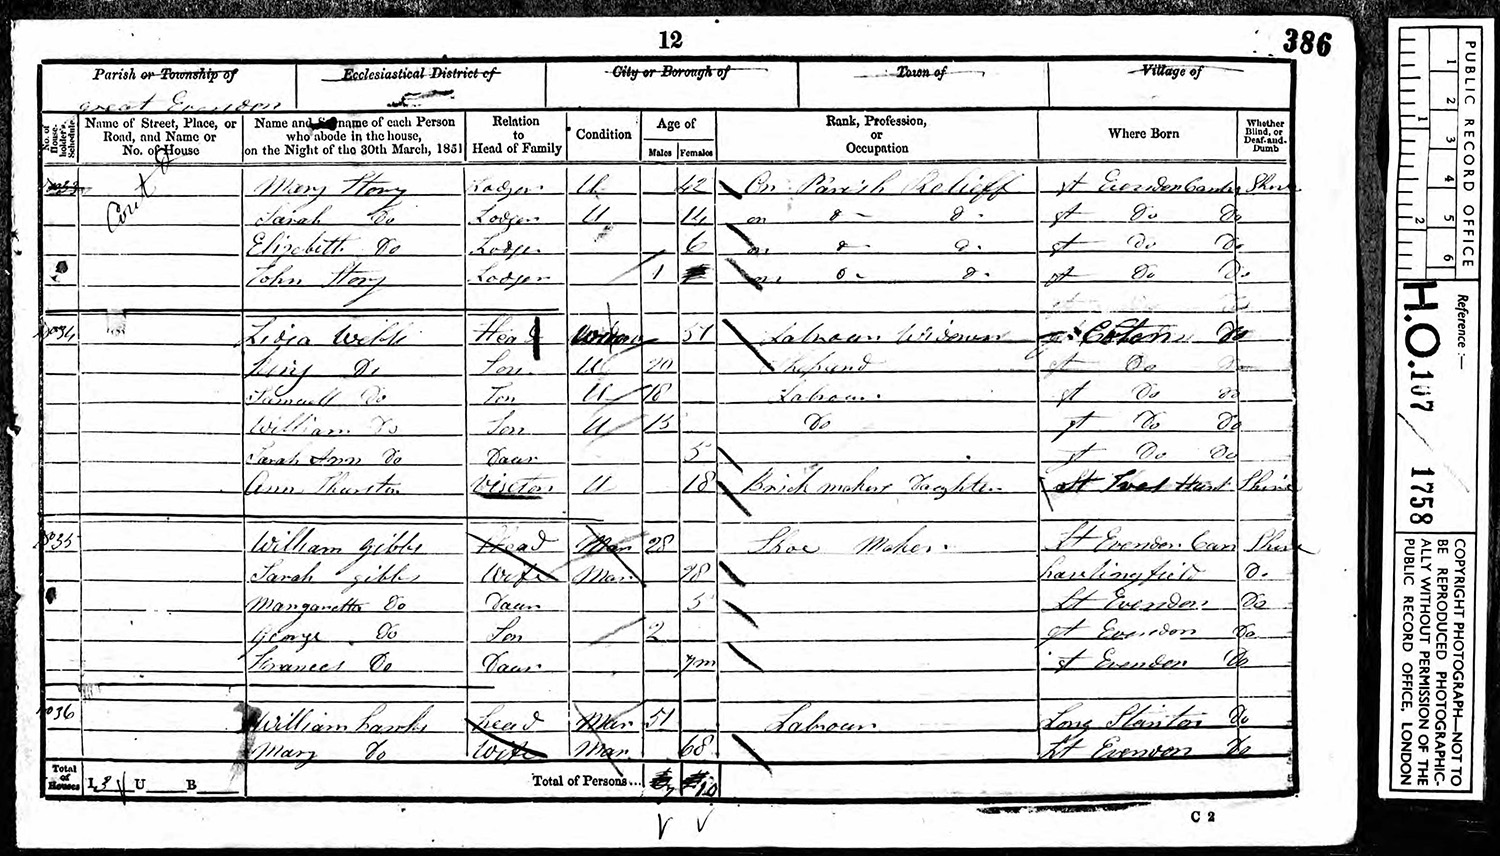 12
386
Parish or Township of
Ecclesiastical District of
City or Borough of
Town of
Village of
great Evendon
No. of House-holder's Schedule
Name of Street, Place, or Road, and Name or No. of House
Name and Surname of each Person who abode in the house, on the Night of the 30th March, 1851
Relation to Head of Family
Condition
Age of
Males
Females
Rank, Profession, or Occupation
Where Born
Whether Blind, or Deaf-and-Dumb
Mary Story Lodger U 42 On Parish Relieff gt Evendon Shire
Sarah Do Lodger U 14 on Do Do gt Do Do
Elizabeth Do Lodger 6 on Do Do gt Do Do
John Story Lodger 1 on Do Do gt Do Do
Webb Head Widow 51 Labrour Widow Coton Do
Do Son U 20 gt Do Do
Samuell Do Son U 18 Labrour gt Do Do
William Do Son U 15 Do gt Do Do
Sarah Ann Do Daur 5 gt Do Do
Ann Thurston Visetor U 18 Brick makers Daughter St Ives Hunt Shire
No 35 William gibbs Head Mar 28 Shoe Maker gt Evendon Cam Shire
Sarah gibbs Wife Mar 28 Do
Margaretta Do Daur 5 gt Evendon Do
George Do Son 2 gt Evendon Do
Frances Do Daur 7m gt Evenden Do
No 36 William Head Mar 51 Labrour Long Stanton Do
Mary Do Wife Mar 68 gt Evenden Do
Total of Houses
I 3 U B
Total of Persons...
10
C 2
PUBLIC RECORD OFFICE
1 2 3 4 5 6
1 2
Reference :—
H.O. 107 / 1758
COPYRIGHT PHOTOGRAPH—NOT TO
BE REPRODUCED PHOTOGRAPHIC-
ALLY WITHOUT PERMISSION OF THE
PUBLIC RECORD OFFICE, LONDON